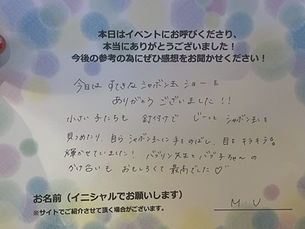 本日はイベントにお呼びくださり、
本当にありがとうございました！
今後の参考の為にぜひ感想をお聞かせください！
今日は すてきな シャボン玉 ショーを
ありがとう ございました！！
小さい子たちも 釘付けで じーっと シャボン玉を
見つめたり、自らシャボン玉に手をのばし、目をキラキラ
輝かせていました！ バブリン先生とバブ子ちゃんの
かけ合いも おもしろくて 最高でした♡
お名前（イニシャルでお願いします）
※サイトでご紹介させて頂く場合がございます。
M U